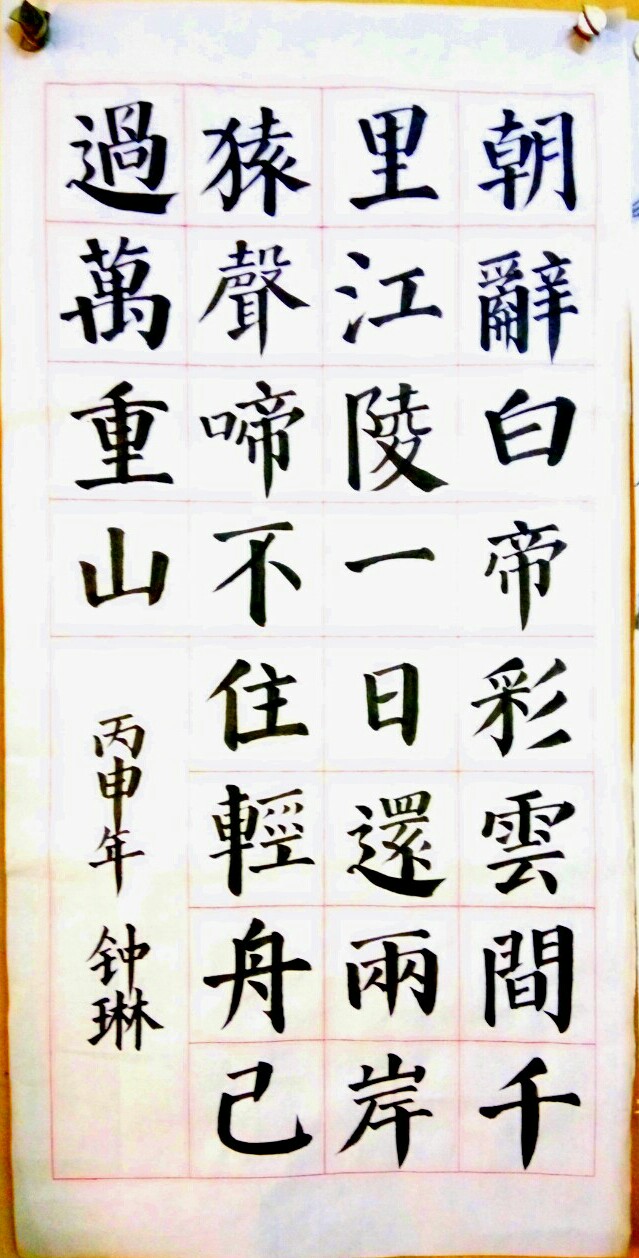 朝辭白帝彩雲間千
里江陵一日還兩岸
猿聲啼不住輕舟已
過萬重山
丙申年 钟琳